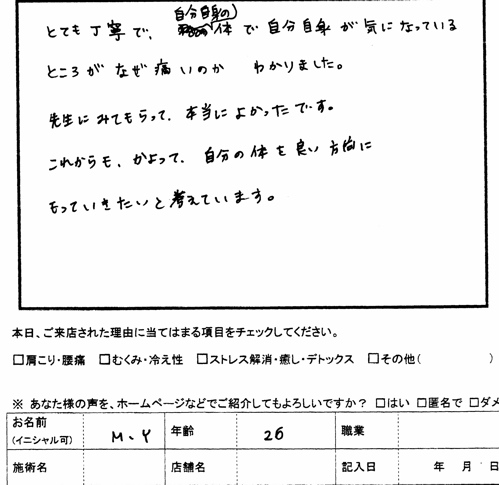 とても丁寧で、自分自身の体で自分自身が気になっている
ところがなぜ痛いのか わかりました。
先生にみてもらって、本当によかったです。
これからも、かよって、自分の体を良い方向に
もっていきたいと考えています。
本日、ご来店された理由に当てはまる項目をチェックしてください。
□肩こり・腰痛 □むくみ・冷え性 □ストレス解消・癒し・デトックス □その他( )
※ あなた様の声を、ホームページなどでご紹介してもよろしいですか？ □はい □匿名で □ダメ
お名前 (イニシャル可) M、Y 年齢 26 職業
施術名 店舗名 記入日 年 月 日